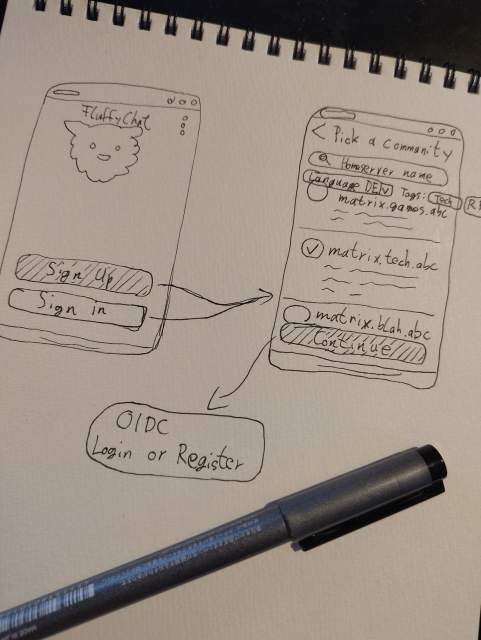 FluffyChat
Sign Up
Sign in
Pick a community
Homeserver name
Language DE Tags: Tech
matrix.games.abc
matrix.tech.abc
matrix.blah.abc
Continue
OIDC
Login or Register